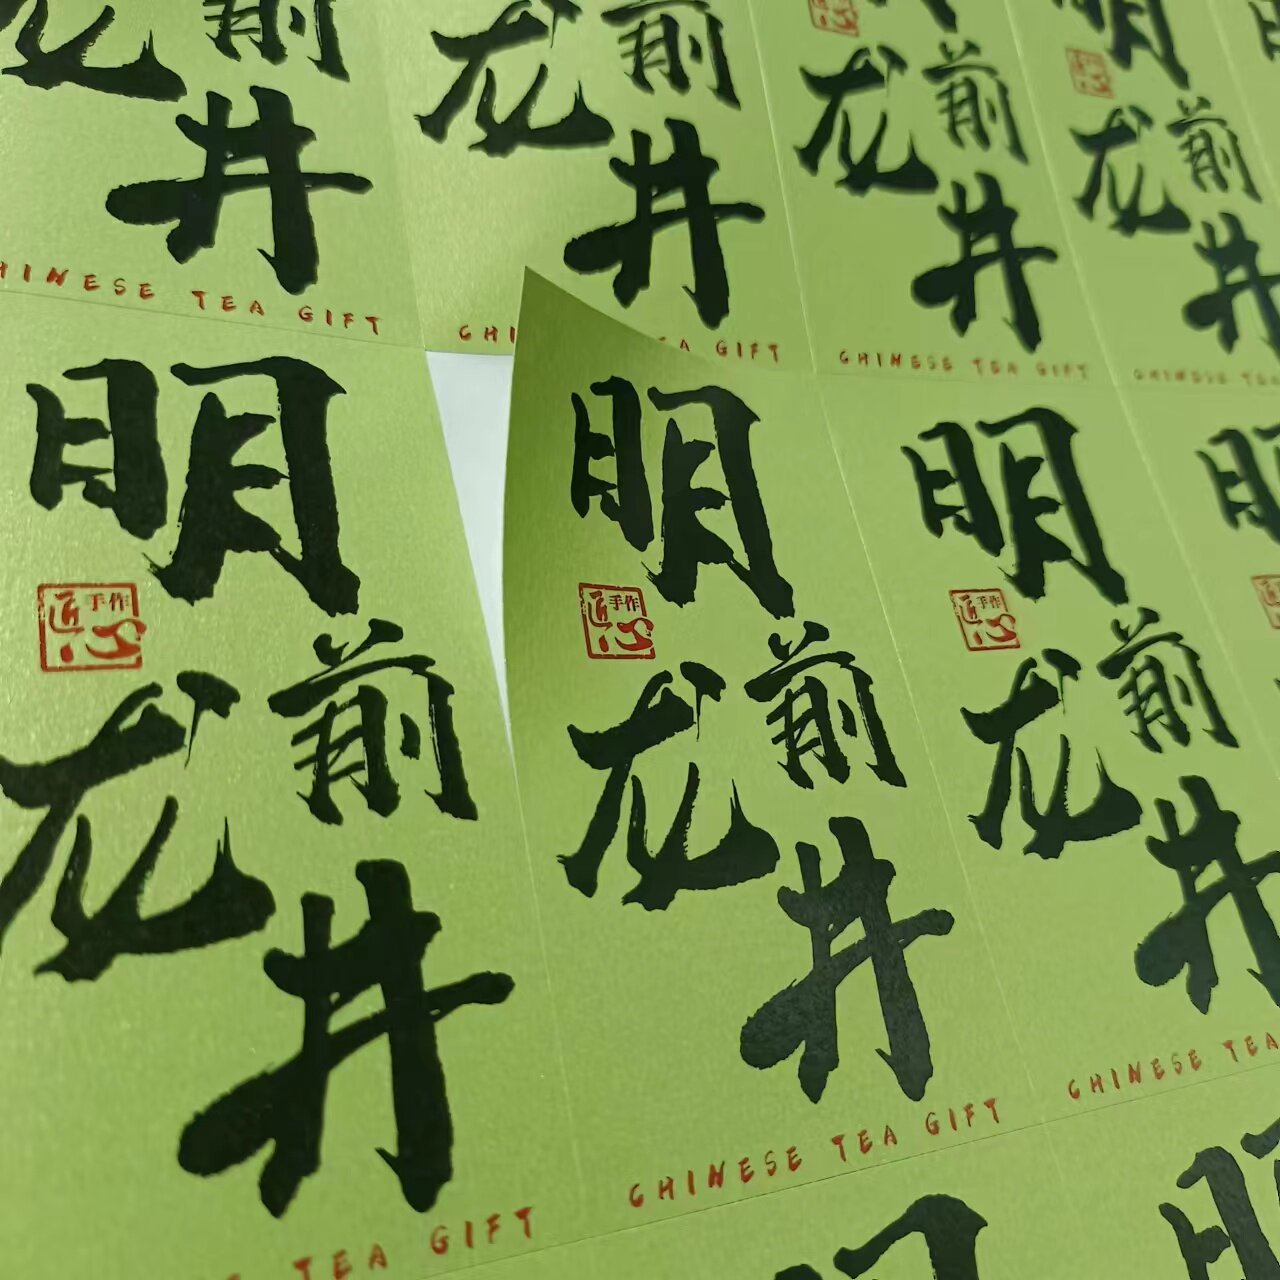 前
龙
井
CHINESE TEA GIFT
前
龙
井
TEA GIFT
前
龙
井
CHINESE TEA GIFT
明
前
龙
井
CHINESE TEA
明
手作
匠心
前
龙
井
TEA GIFT
明
手作
匠心
前
龙
井
CHINESE TEA GIFT
明
手作
匠心
前
龙
井
CHINESE TEA
明
明